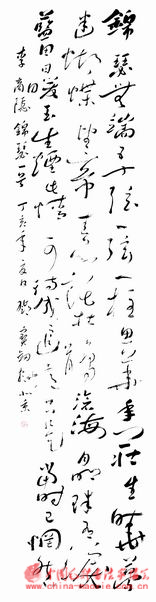 錦瑟無端五十弦一弦一柱思華年莊生曉夢
迷蝴蝶望帝春心託杜鵑滄海月明珠有淚
藍田日暖玉生煙此情可待成追憶只是當時已惘然
李商隱錦瑟一首丁亥年夏月於北京